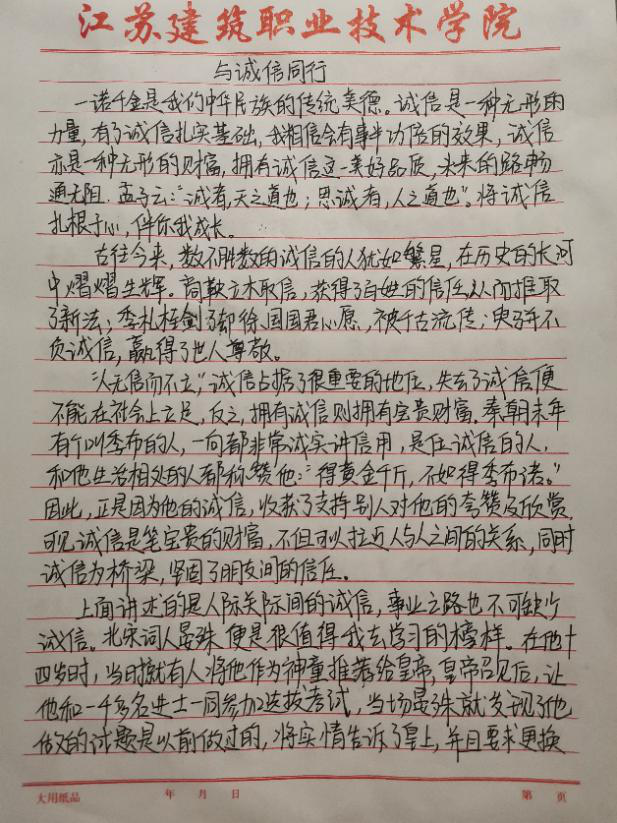 江苏建筑职业技术学院
与诚信同行
一诺千金是我们中华民族的传统美德。诚信是一种无形的
力量,有了诚信扎实基础,我相信会有事半功倍的效果,诚信
亦是一种无形的财富,拥有诚信这一美好品质,未来的路畅
通无阻.孟子云:“诚者,天之道也;思诚者,人之道也”。将诚信
扎根于心,伴你我成长。
古往今来,数不胜数的诚信的人犹如繁星,在历史的长河
中熠熠生辉。商鞅立木取信,获得了百姓的信任从而推取
了新法;季札挂剑了却徐国国君心愿,被千古流传;宋弃不
负诚信,赢得了世人尊敬。
“人无信而不立”,诚信占据了很重要的地位,失去了诚信便
不能在社会上立足,反之,拥有诚信则拥有宝贵财富.秦朝末年
有个叫季布的人,一向都非常诚实讲信用,是位诚信的人,
和他生活相处的人都称赞他:“得黄金千斤,不如得季布诺。”
因此,正是因为他的诚信,收获了支持别人对他的夸赞及欣赏,
可见诚信是笔宝贵的财富,不但可以拉近人与人之间的关系,同时
诚信为桥梁,坚固了朋友间的信任。
上面讲述的是人际关际间的诚信,事业之路也不可缺少
诚信。北宋词人晏殊便是很值得我去学习的榜样。在他十
四岁时,当时就有人将他作为神童推荐给皇帝,皇帝召见后,让
他和一千多名进士一同参加选拔考试,当场晏殊就发现了他
做的试题是以前做过的,将实情告诉了皇上,并且要求更换
大用纸品 年 月 日 第 页